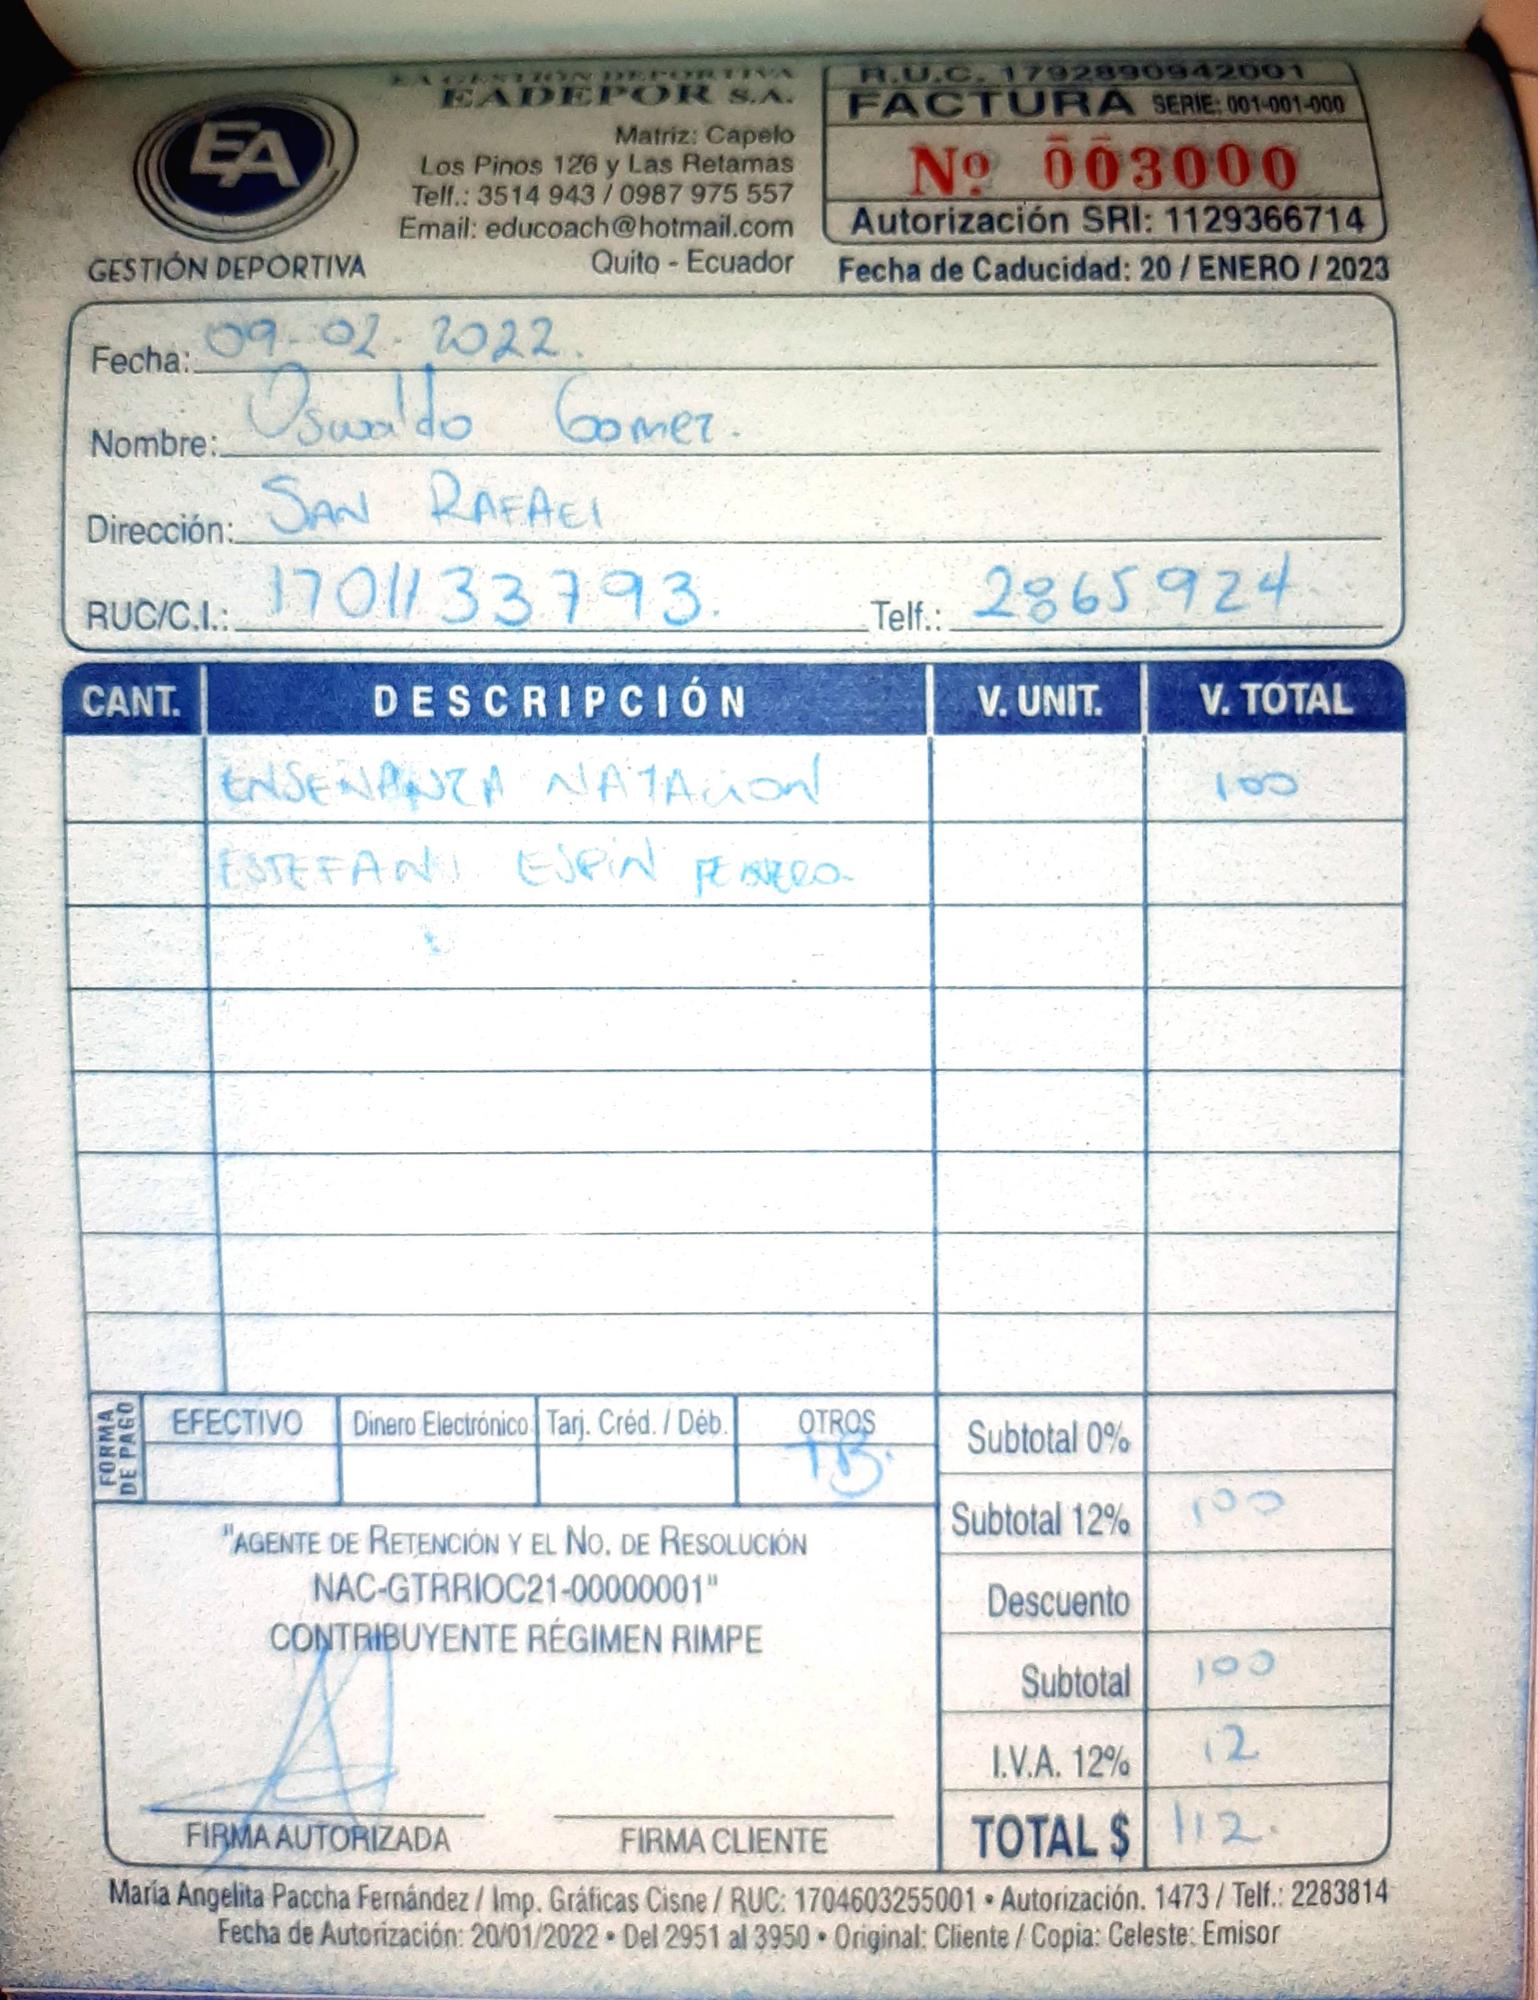 EA
GESTIÓN DEPORTIVA
EA GESTIÓN DEPORTIVA
EADEPOR S.A.
Matriz: Capelo
Los Pinos 126 y Las Retamas
Telf.: 3514 943 / 0987 975 557
Email: educoach@hotmail.com
Quito - Ecuador
R.U.C. 1792890942001
FACTURA SERIE: 001-001-000
Nº 003000
Autorización SRI: 1129366714
Fecha de Caducidad: 20 / ENERO / 2023
Fecha: 09-02-2022.
Nombre: Oswaldo Gomez.
Dirección: SAN RAFAEl
RUC/C.I.: 1701133793. Telf.: 2865924
CANT. DESCRIPCIÓN V. UNIT. V. TOTAL
ENSEÑANZA NATACION 100
ESTEFANI ESPIN FEBRERO
FORMA DE PAGO
EFECTIVO Dinero Electrónico Tarj. Créd. / Déb. OTROS
TB.
Subtotal 0%
Subtotal 12% 100
Descuento
Subtotal 100
I.V.A. 12% 12
TOTAL $ 112.
"AGENTE DE RETENCIÓN Y EL NO. DE RESOLUCIÓN
NAC-GTRRIOC21-00000001"
CONTRIBUYENTE RÉGIMEN RIMPE
FIRMA AUTORIZADA FIRMA CLIENTE
María Angelita Paccha Fernández / Imp. Gráficas Cisne / RUC: 1704603255001 • Autorización. 1473 / Telf.: 2283814
Fecha de Autorización: 20/01/2022 • Del 2951 al 3950 • Original: Cliente / Copia: Celeste: Emisor